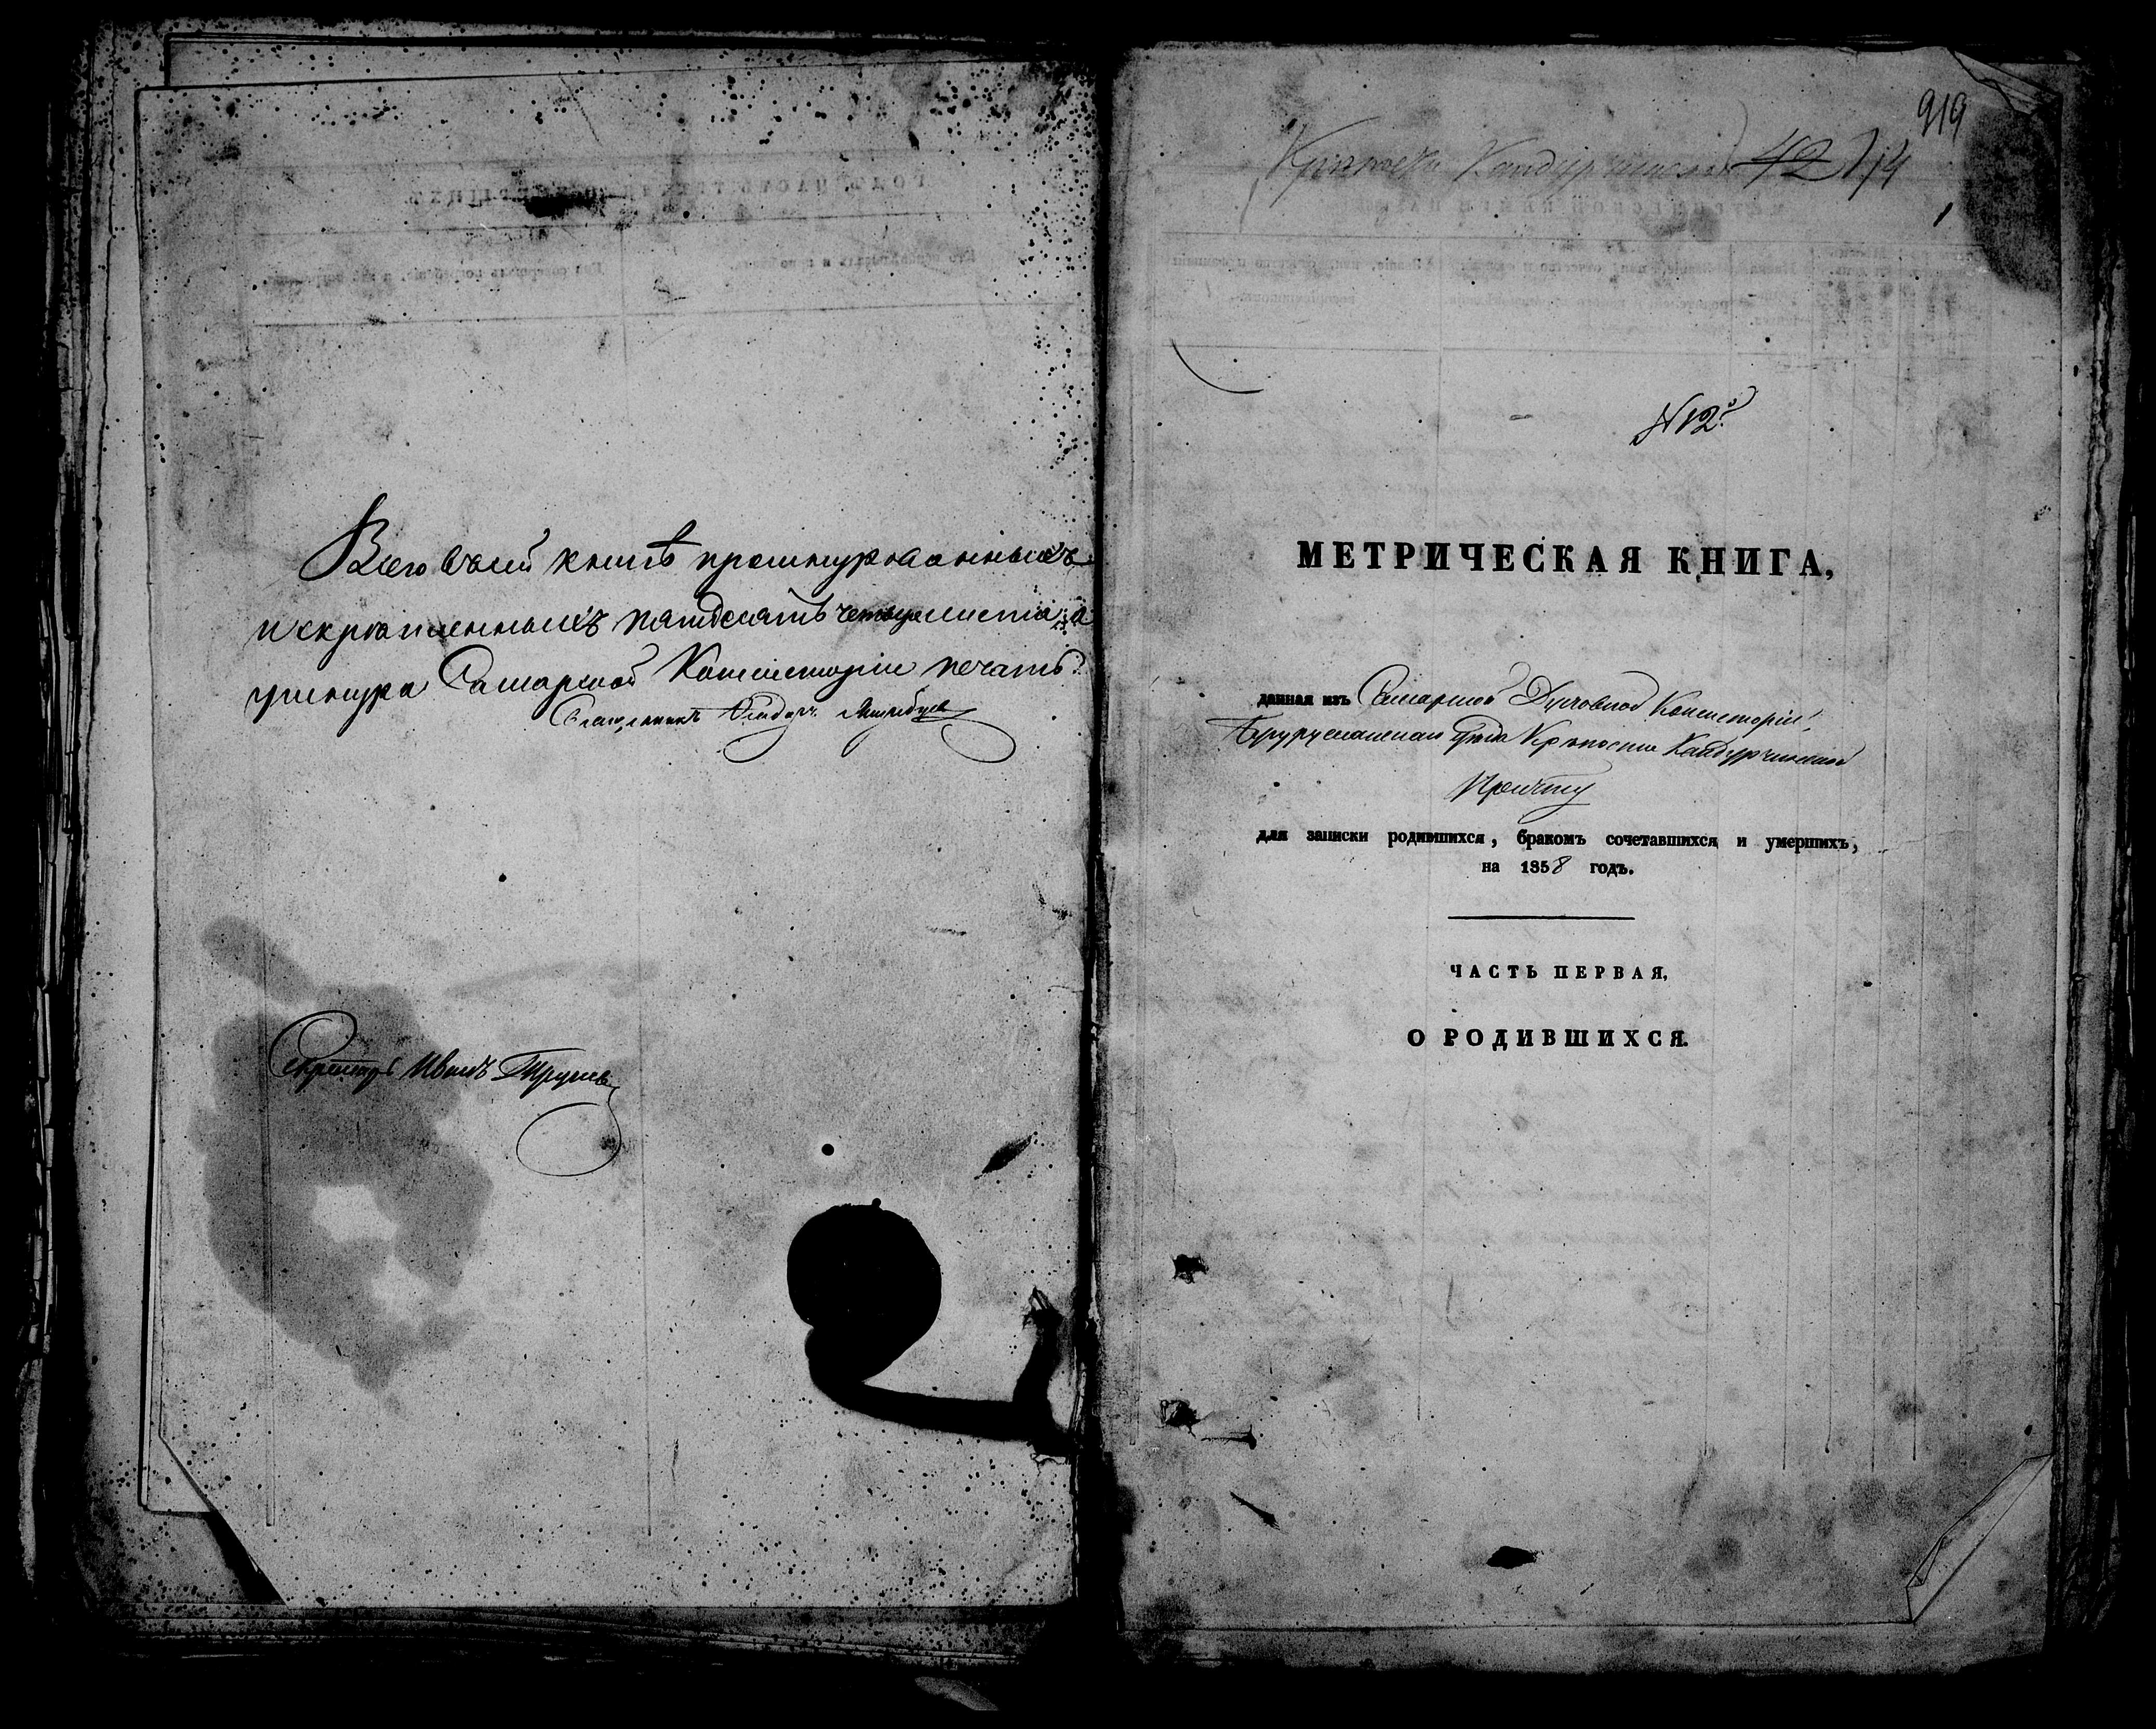 Всего въ сей книгѣ прошнурованныхъ
и скрѣпленныхъ пятдесятъ четыре листа, а
у шнура Самарской Консисторіи печать.
Священникъ
Секретарь Иванъ
919
Крѣпости Кандурчинской 42) 14
N 12й
МЕТРИЧЕСКАЯ КНИГА,
данная изъ Самарской Духовной Консисторіи,
Бугурусланскаго уѣзда Крѣпости Кандурчинской
Причту
для записки родившихся, бракомъ сочетавшихся и умершихъ,
на 1858 годъ.
ЧАСТЬ ПЕРВАЯ,
О РОДИВШИХСЯ.